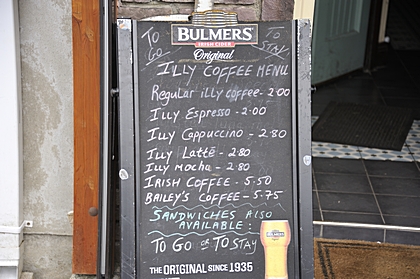 BULMERS
IRISH CIDER
Original
TO GO
TO STAY
ILLY COFFEE MENU
Regular illy coffee - 2.00
Illy Espresso - 2.00
Illy Cappuccino - 2.80
Illy Latte - 2.80
Illy Mocha - 2.80
IRISH COFFEE - 5.50
BAILEY'S COFFEE - 5.75
SANDWICHES ALSO
AVAILABLE :
TO GO OR TO STAY
BULMERS
THE ORIGINAL SINCE 1935